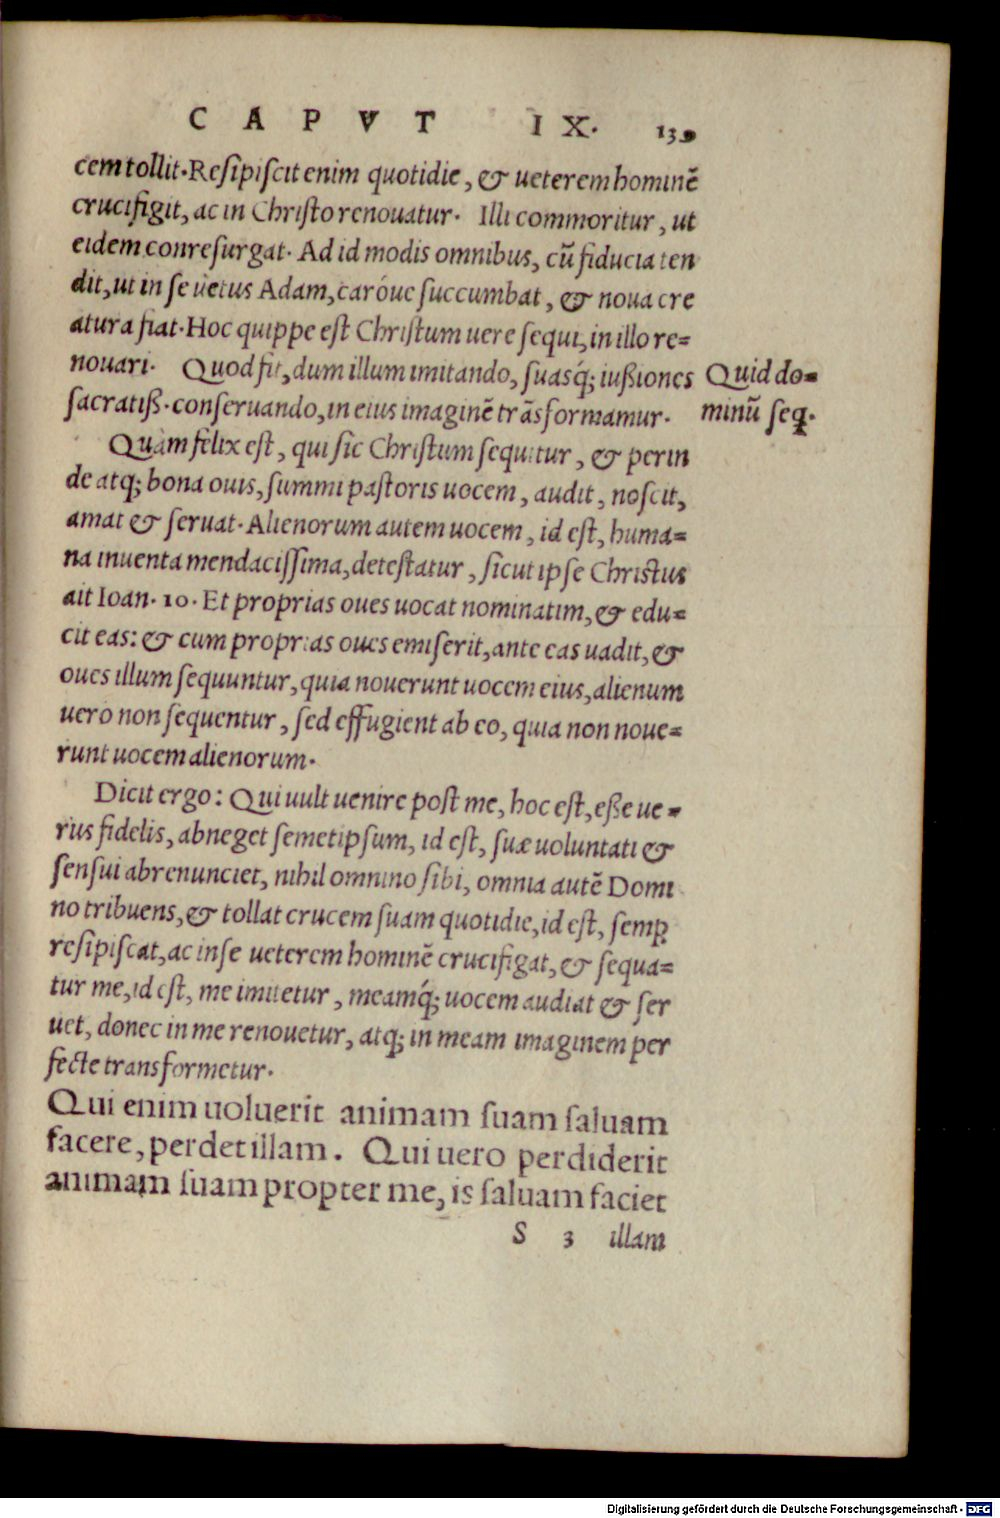 CAPVT IX. 139
cem tollit. Resipiscit enim quotidie, & ueterem hominē
crucifigit, ac in Christo renouatur. Illi commoritur, ut
eidem conresurgat. Ad id modis omnibus, cū fiducia ten
dit, ut in se uetus Adam, caróue succumbat, & noua cre
atura fiat. Hoc quippe est Christum uere sequi, in illo re=
nouari. Quod fit, dum illum imitando, suasq́; iußiones
sacratiß. conseruando, in eius imaginē trāsformamur.
Quid do=
minū seq.
Quàm felix est, qui sic Christum sequitur, & perin
de atq; bona ouis, summi pastoris uocem, audit, noscit,
amat & seruat. Alienorum autem uocem, id est, huma=
na inuenta mendacissima, detestatur, sicut ipse Christus
ait Ioan. 10. Et proprias oues uocat nominatim, & edu=
cit eas: & cum proprias oues emiserit, ante eas uadit, &
oues illum sequuntur, quia nouerunt uocem eius, alienum
uero non sequentur, sed effugient ab eo, quia non noue=
runt uocem alienorum.
Dicit ergo: Qui uult uenire post me, hoc est, eße ue=
rus fidelis, abneget semetipsum, id est, suæ uoluntati &
sensui abrenunciet, nihil omnino sibi, omnia autē Domi
no tribuens, & tollat crucem suam quotidie, id est, semꝑ
resipiscat, ac in se ueterem hominē crucifigat, & sequa=
tur me, id est, me imitetur, meamq́; uocem audiat & ser
uet, donec in me renouetur, atq; in meam imaginem per
fecte transformetur.
Qui enim uoluerit animam suam saluam
facere, perdet illam. Qui uero perdiderit
animam suam propter me, is saluam faciet
S 3 illam
Digitalisierung gefördert durch die Deutsche Forschungsgemeinschaft - DFG